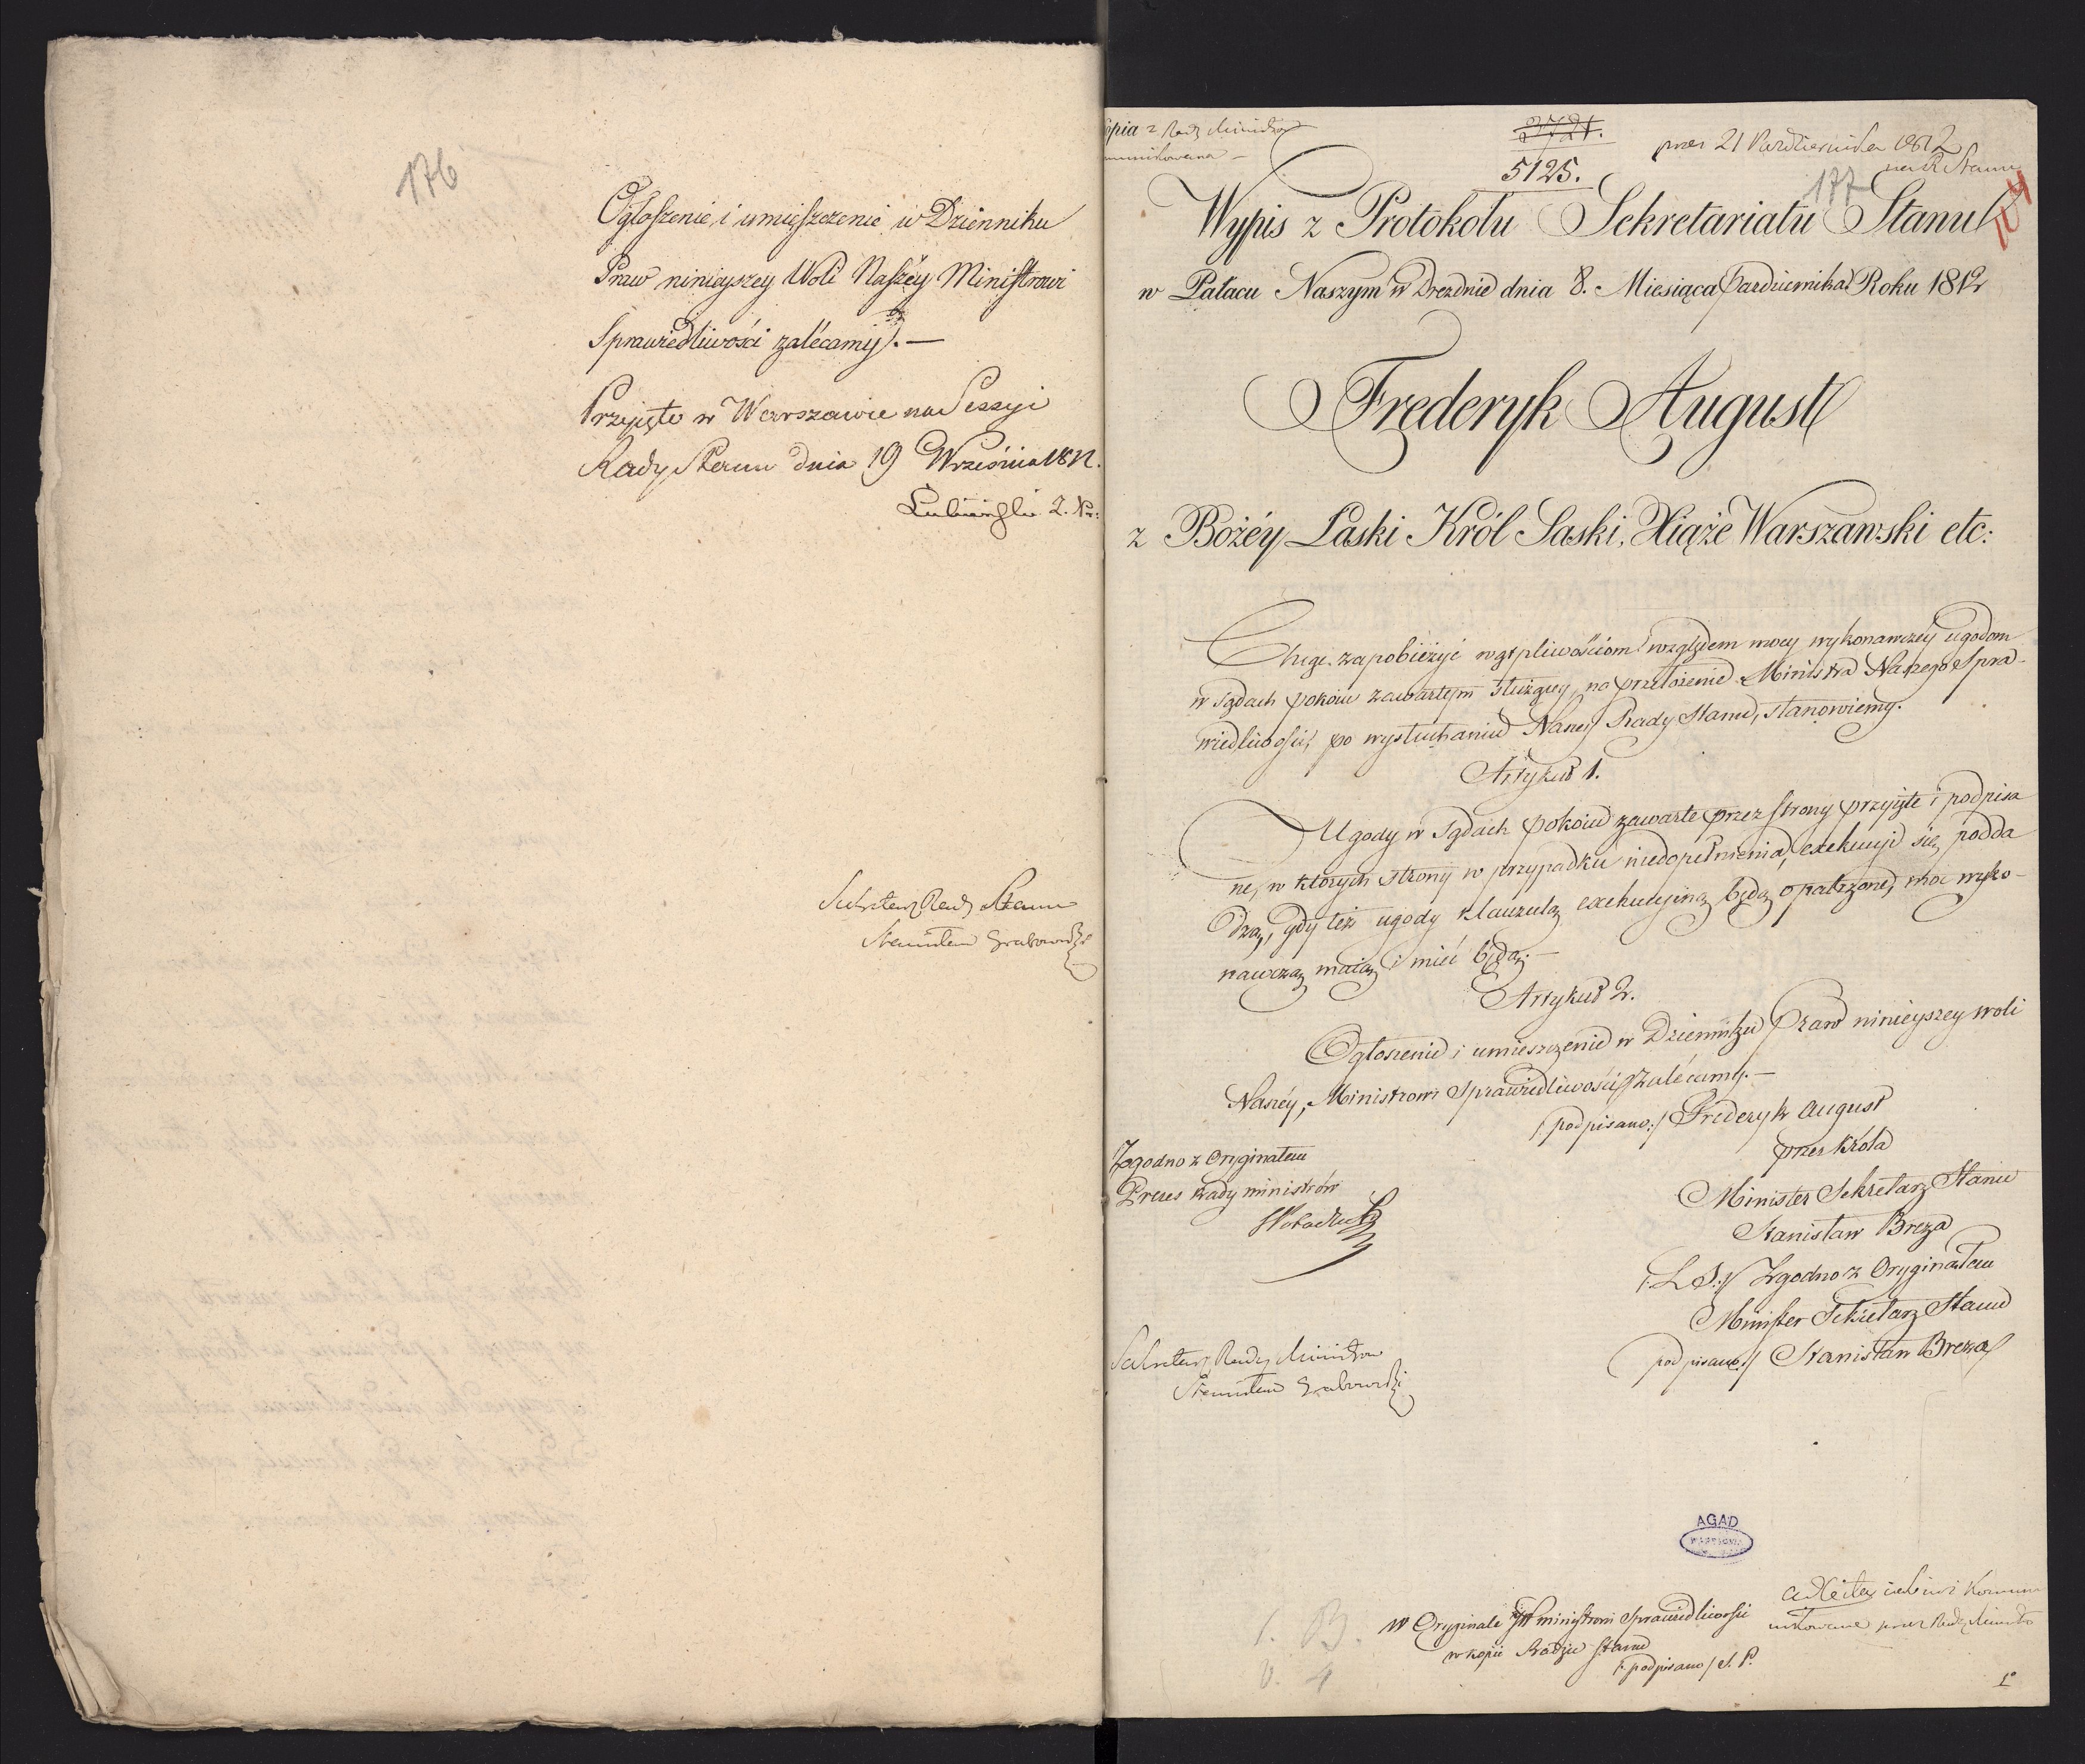 176
Ogłoszenie i umieszczenie w Dzienniku
Praw ninieyszey Woli Naszéy Ministrowi
Sprawiedliwości zalécamy. —
Przyięte w Warszawie na Sessyi
Rady Stanu dnia 19 Września 1812.
Łubieński
Sekretarz Rady Stanu
Stanisław Grabowski
opia z Rady Ministrów
munikowana —
3721.
5125.
prez 21 Października 1812
na R Stanu
177
104
Wypis z Protokołu Sekretariatu Stanu
w Pałacu Naszym w Dreźnie dnia 8. Miesiąca Października Roku 1812
Frederyk August
z Bożéy Łaski Król Saski, Xiąże Warszawski etc:
Chcąc zapobieżyć wątpliwościom względem mocy wykonawczéy ugodom
w sądach pokoiu zawartym służącey, na przełożenie Ministra Naszego Spra-
wiedliwości, po wysłuchaniu Naszey Rady Stanu, stanowiemy.
Artykuł 1.
Ugody w sądach pokoiu zawarte przez strony przyięte i podpisa
ne, w których strony w przypadku niedopełnienia, exekucyi się podda
dzą, gdy też ugody klauzulą exekucyiną będą opatrzone, moc wyko-
nawczą maią i mieć będą. —
Artykuł 2.
Ogłoszenie i umieszczenie w Dzienniku Praw ninieyszey woli
Naszéy, Ministrowi Sprawiedliwości zalécamy. —
/:podpisano:/ Frederyk August
przez Króla
Minister Sekretarz Stanu
Stanisław Breza
/:L.S:/ Zgodno z Oryginałem
Minister Sekretarz Stanu
podpisano:/ Stanisław Breza
Zgodno z Oryginałem
Prezes Rady ministrów
Sekretarz Rady Ministrów
Stanisław Grabowski
AGAD
W Oryginale JW ministrowi Sprawiedliwości
w kopii Radzie Stanu
/:podpisano/ S. P.